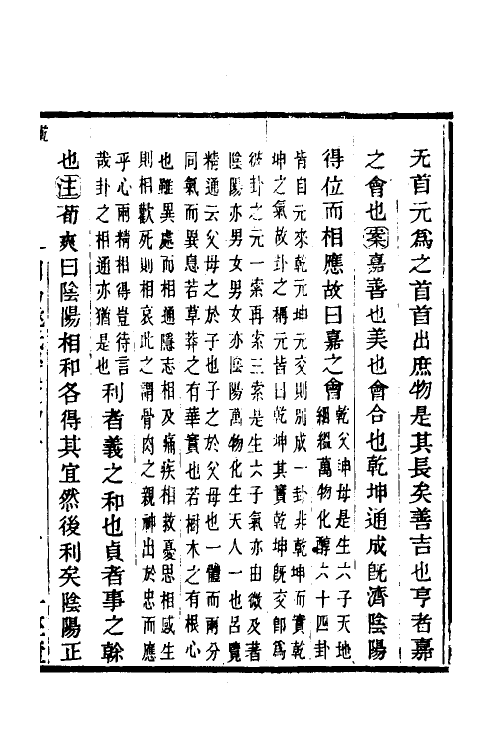 无首元爲之首首出庶物是其長矣善吉也亨者嘉
之會也案嘉善也美也會合也乾坤通成旣濟陰陽
得位而相應故曰嘉之會
乾父坤母是生六子天地
絪縕萬物化醇六十四卦
皆自元來乾元坤元交則別成一卦非乾坤而實乾
坤之氣故卦之稱元皆曰乾坤其實乾坤旣交卽爲
彼卦之元一索再索三索是生六子氣亦由微及著
陰陽亦男女男女亦陰陽萬物化生天人一也呂覽
精通云父母之於子也子之於父母也一體而兩分
同氣而異息若草莽之有華實也若樹木之有根心
也雖異處而相通隱志相及痛疾相救憂思相感生
則相歡死則相哀此之謂骨肉之親神出於忠而應
乎心兩精相得豈待言
哉卦之相通亦猶是也
利者義之和也貞者事之榦
也注荀爽曰陰陽相和各得其宜然後利矣陰陽正